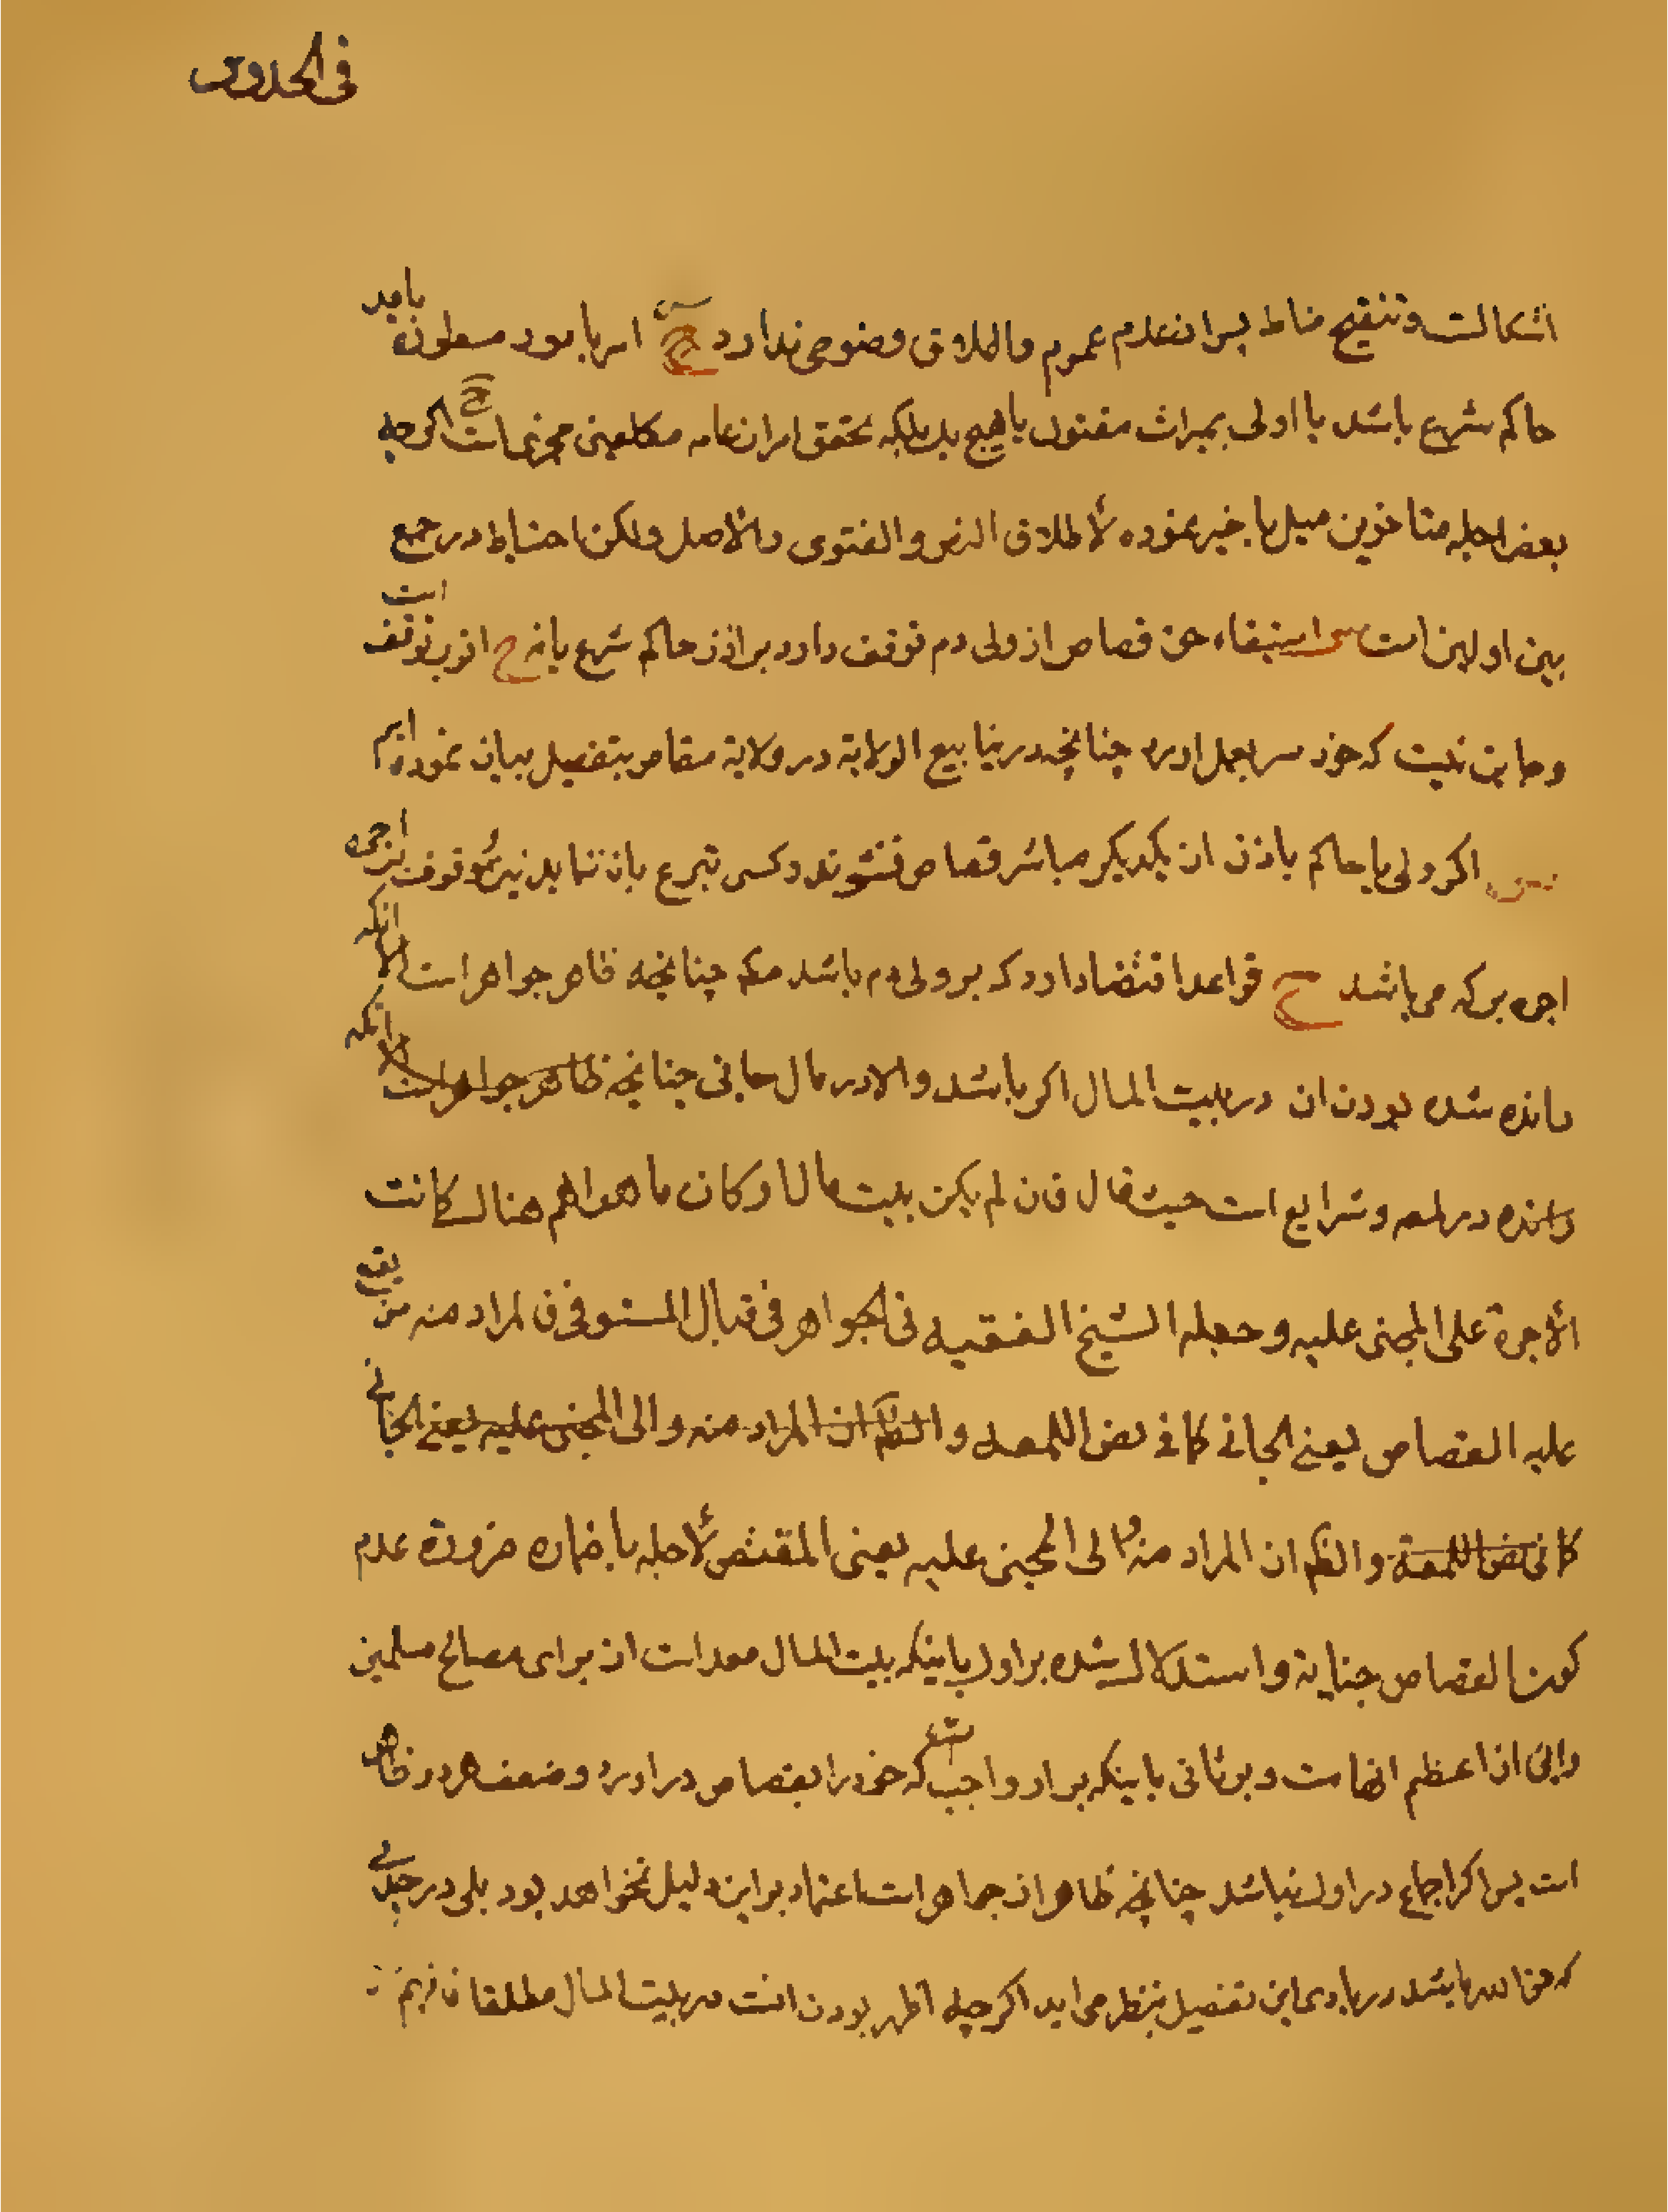 فی الحدود
اشکالست و تنقیح مناط پس انعدام عموم و اطلاق وضوحی ندارد ج امر با بودن باید
حاکم شرع باشد یا اولی بمیراث مقتول یا هیچ یک بلکه بتحقق امر ان عامه مکلفین مجزیست اکرچه
بعض اجله متاخرین میل باخیر نموده لاطلاق النص و الفتوی و الاصل ولکن احتیاط در جمع
بین اولین است س استیفاء حق قصاص از ولی دم توقف دارد بر اذن حاکم شرع یا نه ج اقرب توقف است
و جایز نیست که خود سر بعمل اورد چنانچه در ینابیع الولایة در ولایة مقاص بتفصیل بیان نموده ایم
س اکر ولی یا حاکم باذن ان یکدیکر مباشر قصاص نشوند و کسی تبرع بان ننماید موقوف اجره
اجره بر که می باشد ج قواعد اقتضا دارد که بر ولی دم باشد چنانچه ظاهر جواهر است الا انکه
رانده شده بودن ان در بیت المال اکر باشد والا در مال جانی چنانچه ظاهر جواهر است الا انکه
رانده در لمعه و شرایع است حیث قال فان لم یکن بیت مال او کان ما هو اهم هنالک کانت
الأجرة علی المجنی علیه و جعله الشیخ الفقیه فی الجواهر فی قبال المستوفی فالمراد منه من یقع
علیه القصاص یعنی الجانی کما فی نص اللمعه و الظ ان المراد منه والی المجنی علیه یعنی الجانی
کما فی نص اللمعة و الظ ان المراد منه ولی المجنی علیه یعنی المقتص لاجله باضماره ضرورة عدم
کون القصاص جنایة و استدلال شده بر اول باینکه بیت المال معد است از برای مصالح مسلمین
و این از اعظم انهاست و بر ثانی باینکه بر او واجب است که خود را بقصاص در اورد و ضعف هر دو ظاهر
است پس اکر اجماع در اول نباشد چنانچه ظاهر از جواهر است اعتماد بر این دلیل نخواهد بود بلی در
که حق الله باشد در بادی این تفصیل بنظر می اید اکرچه اظهر بودن انست در بیت المال مطلقا فافهم